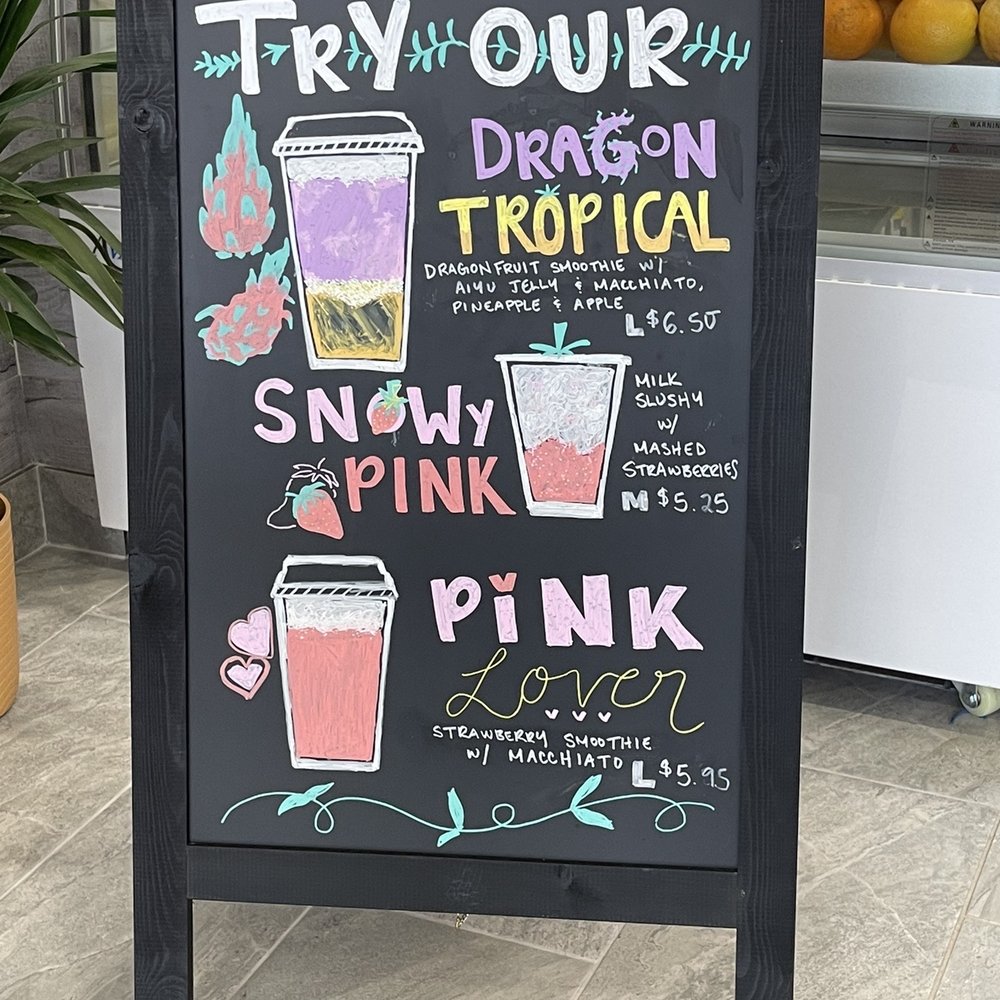 TRY OUR
DRAGON
TROPICAL
DRAGONFRUIT SMOOTHIE W/
AIYU JELLY & MACCHIATO,
PINEAPPLE & APPLE
L $6.50
SNOWY
PINK
MILK
SLUSHY
W/
MASHED
STRAWBERRIES
M $5.25
PINK
Lover
STRAWBERRY SMOOTHIE
W/ MACCHIATO
L $5.95
WARNING